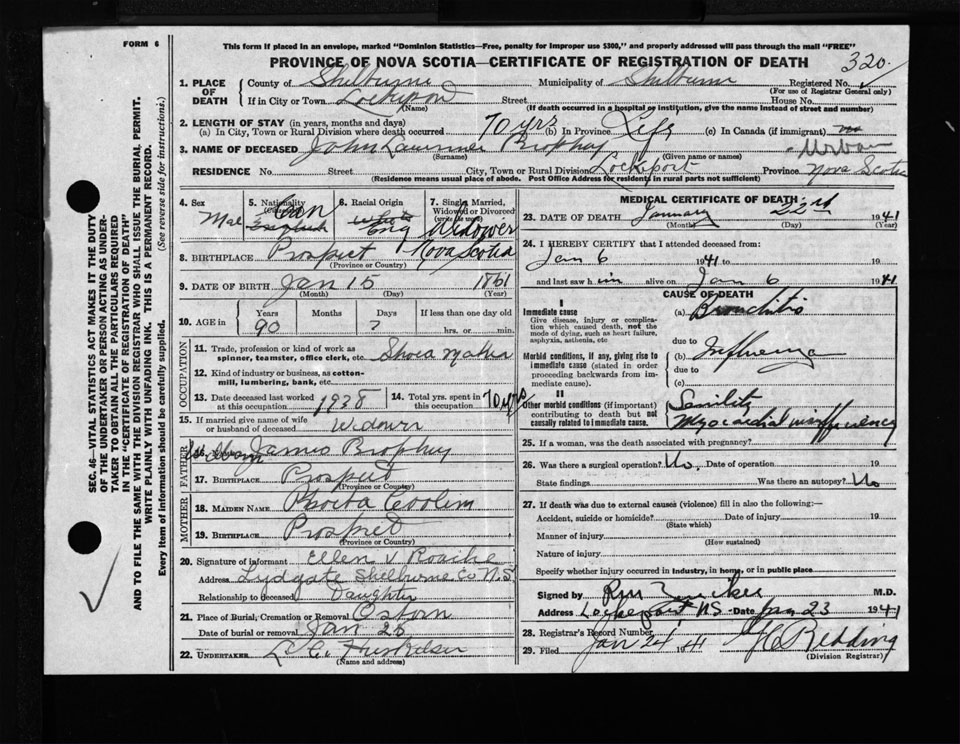 FORM 6
This form if placed in an envelope, marked "Dominion Statistics—Free, penalty for improper use $300," and properly addressed will pass through the mail "FREE"
PROVINCE OF NOVA SCOTIA—CERTIFICATE OF REGISTRATION OF DEATH
320
SEC. 46—VITAL STATISTICS ACT MAKES IT THE DUTY
OF THE UNDERTAKER OR PERSON ACTING AS UNDER-
TAKER TO OBTAIN ALL THE PARTICULARS REQUIRED
IN THE "CERTIFICATE OF REGISTRATION OF DEATH"
AND TO FILE THE SAME WITH THE DIVISION REGISTRAR WHO SHALL ISSUE THE BURIAL PERMIT.
WRITE PLAINLY WITH UNFADING INK. THIS IS A PERMANENT RECORD.
Every item of information should be carefully supplied. (See reverse side for instructions.)
1. PLACE OF DEATH County of Shelburne Municipality of Shelburne Registered No.
(For use of Registrar General only)
If in City or Town Lockeport Street House No.
(Name) (If death occurred in a hospital or institution, give the name instead of street and number)
2. LENGTH OF STAY (in years, months and days)
(a) In City, Town or Rural Division where death occurred 70 yrs (b) In Province Life (c) In Canada (if immigrant) no
3. NAME OF DECEASED John Brophy Urban
(Surname) (Given name or names)
RESIDENCE No. Street City, Town or Rural Division Lockeport Province Nova Scotia
(Residence means usual place of abode. Post Office Address for residents in rural parts not sufficient)
4. Sex Male
5. Nationality Can English
6. Racial Origin White Eng
7. Single, Married, Widowed or Divorced (write the word) Widower
8. BIRTHPLACE Prospect Nova Scotia
(Province or Country)
9. DATE OF BIRTH Jan 15 1861
(Month) (Day) (Year)
10. AGE in Years Months Days If less than one day old
90 7 hrs. or min.
OCCUPATION
11. Trade, profession or kind of work as spinner, teamster, office clerk, etc. Shoea Maker
12. Kind of industry or business, as cotton-mill, lumbering, bank, etc.
13. Date deceased last worked at this occupation 1938
14. Total yrs. spent in this occupation 70 yrs
15. If married give name of wife or husband of deceased Widower
FATHER
16. James Brophy
17. BIRTHPLACE Prospect
(Province or Country)
MOTHER
18. MAIDEN NAME Coolen
19. BIRTHPLACE Prospect
(Province or Country)
20. Signature of informant Ellen V Roache
Address Lydgate Shelburne Co N.S.
Relationship to deceased Daughter
21. Place of Burial, Cremation or Removal
Date of burial or removal Jan 25
22. UNDERTAKER
(Name and address)
MEDICAL CERTIFICATE OF DEATH
23. DATE OF DEATH January 22nd 1941
(Month) (Day) (Year)
24. I HEREBY CERTIFY that I attended deceased from:
Jan 6 1941 to 19
and last saw him alive on Jan 6 1941
CAUSE OF DEATH
I
Immediate cause
Give disease, injury or complication which caused death, not the mode of dying, such as heart failure, asphyxia, asthenia, etc
(a) Bronchitis
due to
Morbid conditions, if any, giving rise to immediate cause (stated in order proceeding backwards from immediate cause).
(b) Influenza
due to
(c)
II
Other morbid conditions (if important) contributing to death but not causally related to immediate cause.
Senility
Myocardial insufficiency
25. If a woman, was the death associated with pregnancy?
26. Was there a surgical operation? No. Date of operation 19
State findings Was there an autopsy? No
27. If death was due to external causes (violence) fill in also the following:—
Accident, suicide or homicide? Date of injury 19
(State which)
Manner of injury
(How sustained)
Nature of injury
Specify whether injury occurred in industry, in home, or in public place
Signed by M.D.
Address Lockeport NS Date Jan 23 1941
28. Registrar's Record Number
29. Filed Jan 24 1941 Redding
(Division Registrar)